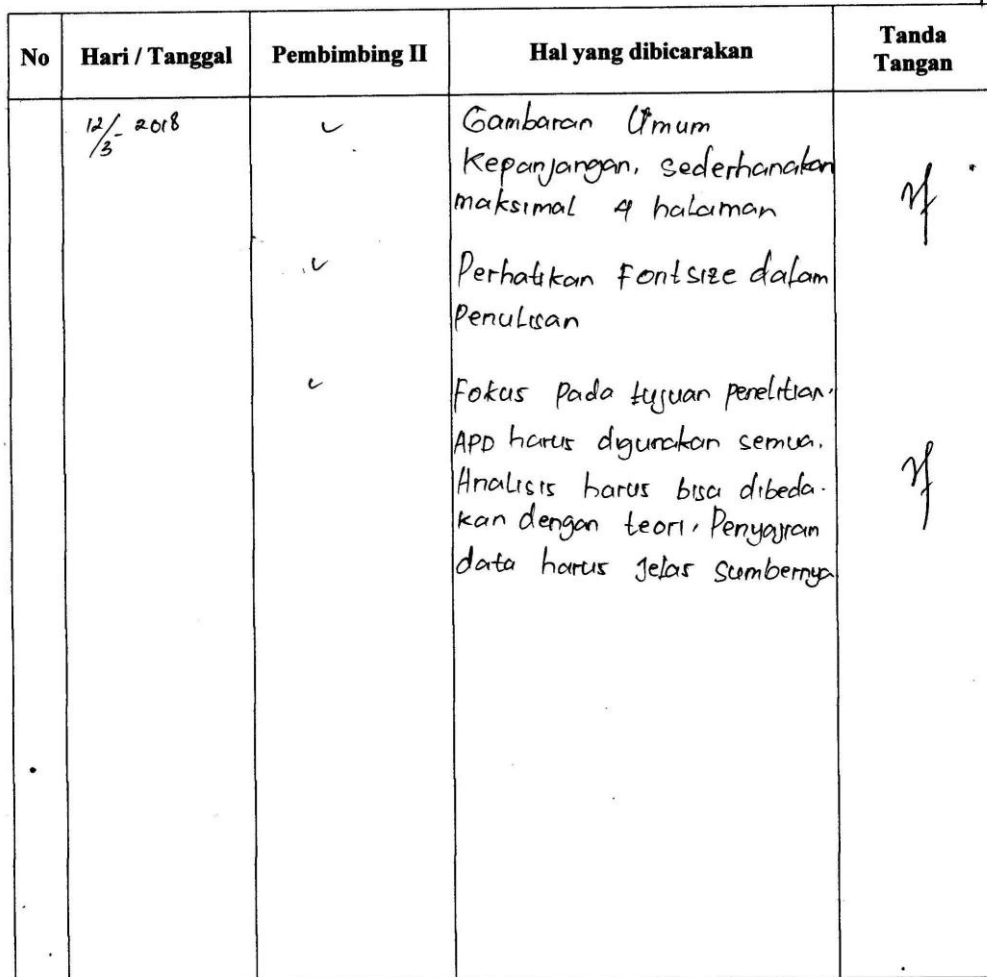 No Hari / Tanggal Pembimbing II Hal yang dibicarakan Tanda Tangan
12/3 - 2018
Gambaran Umum
Kepanjangan, sederhanakan
maksimal 4 halaman
Perhatikan Fontsize dalam
Penulisan
Fokus pada tujuan penelitian.
APD harus digunakan semua.
Analisis harus bisa dibeda-
kan dengan teori, Penyajian
data harus Jelas Sumbernya